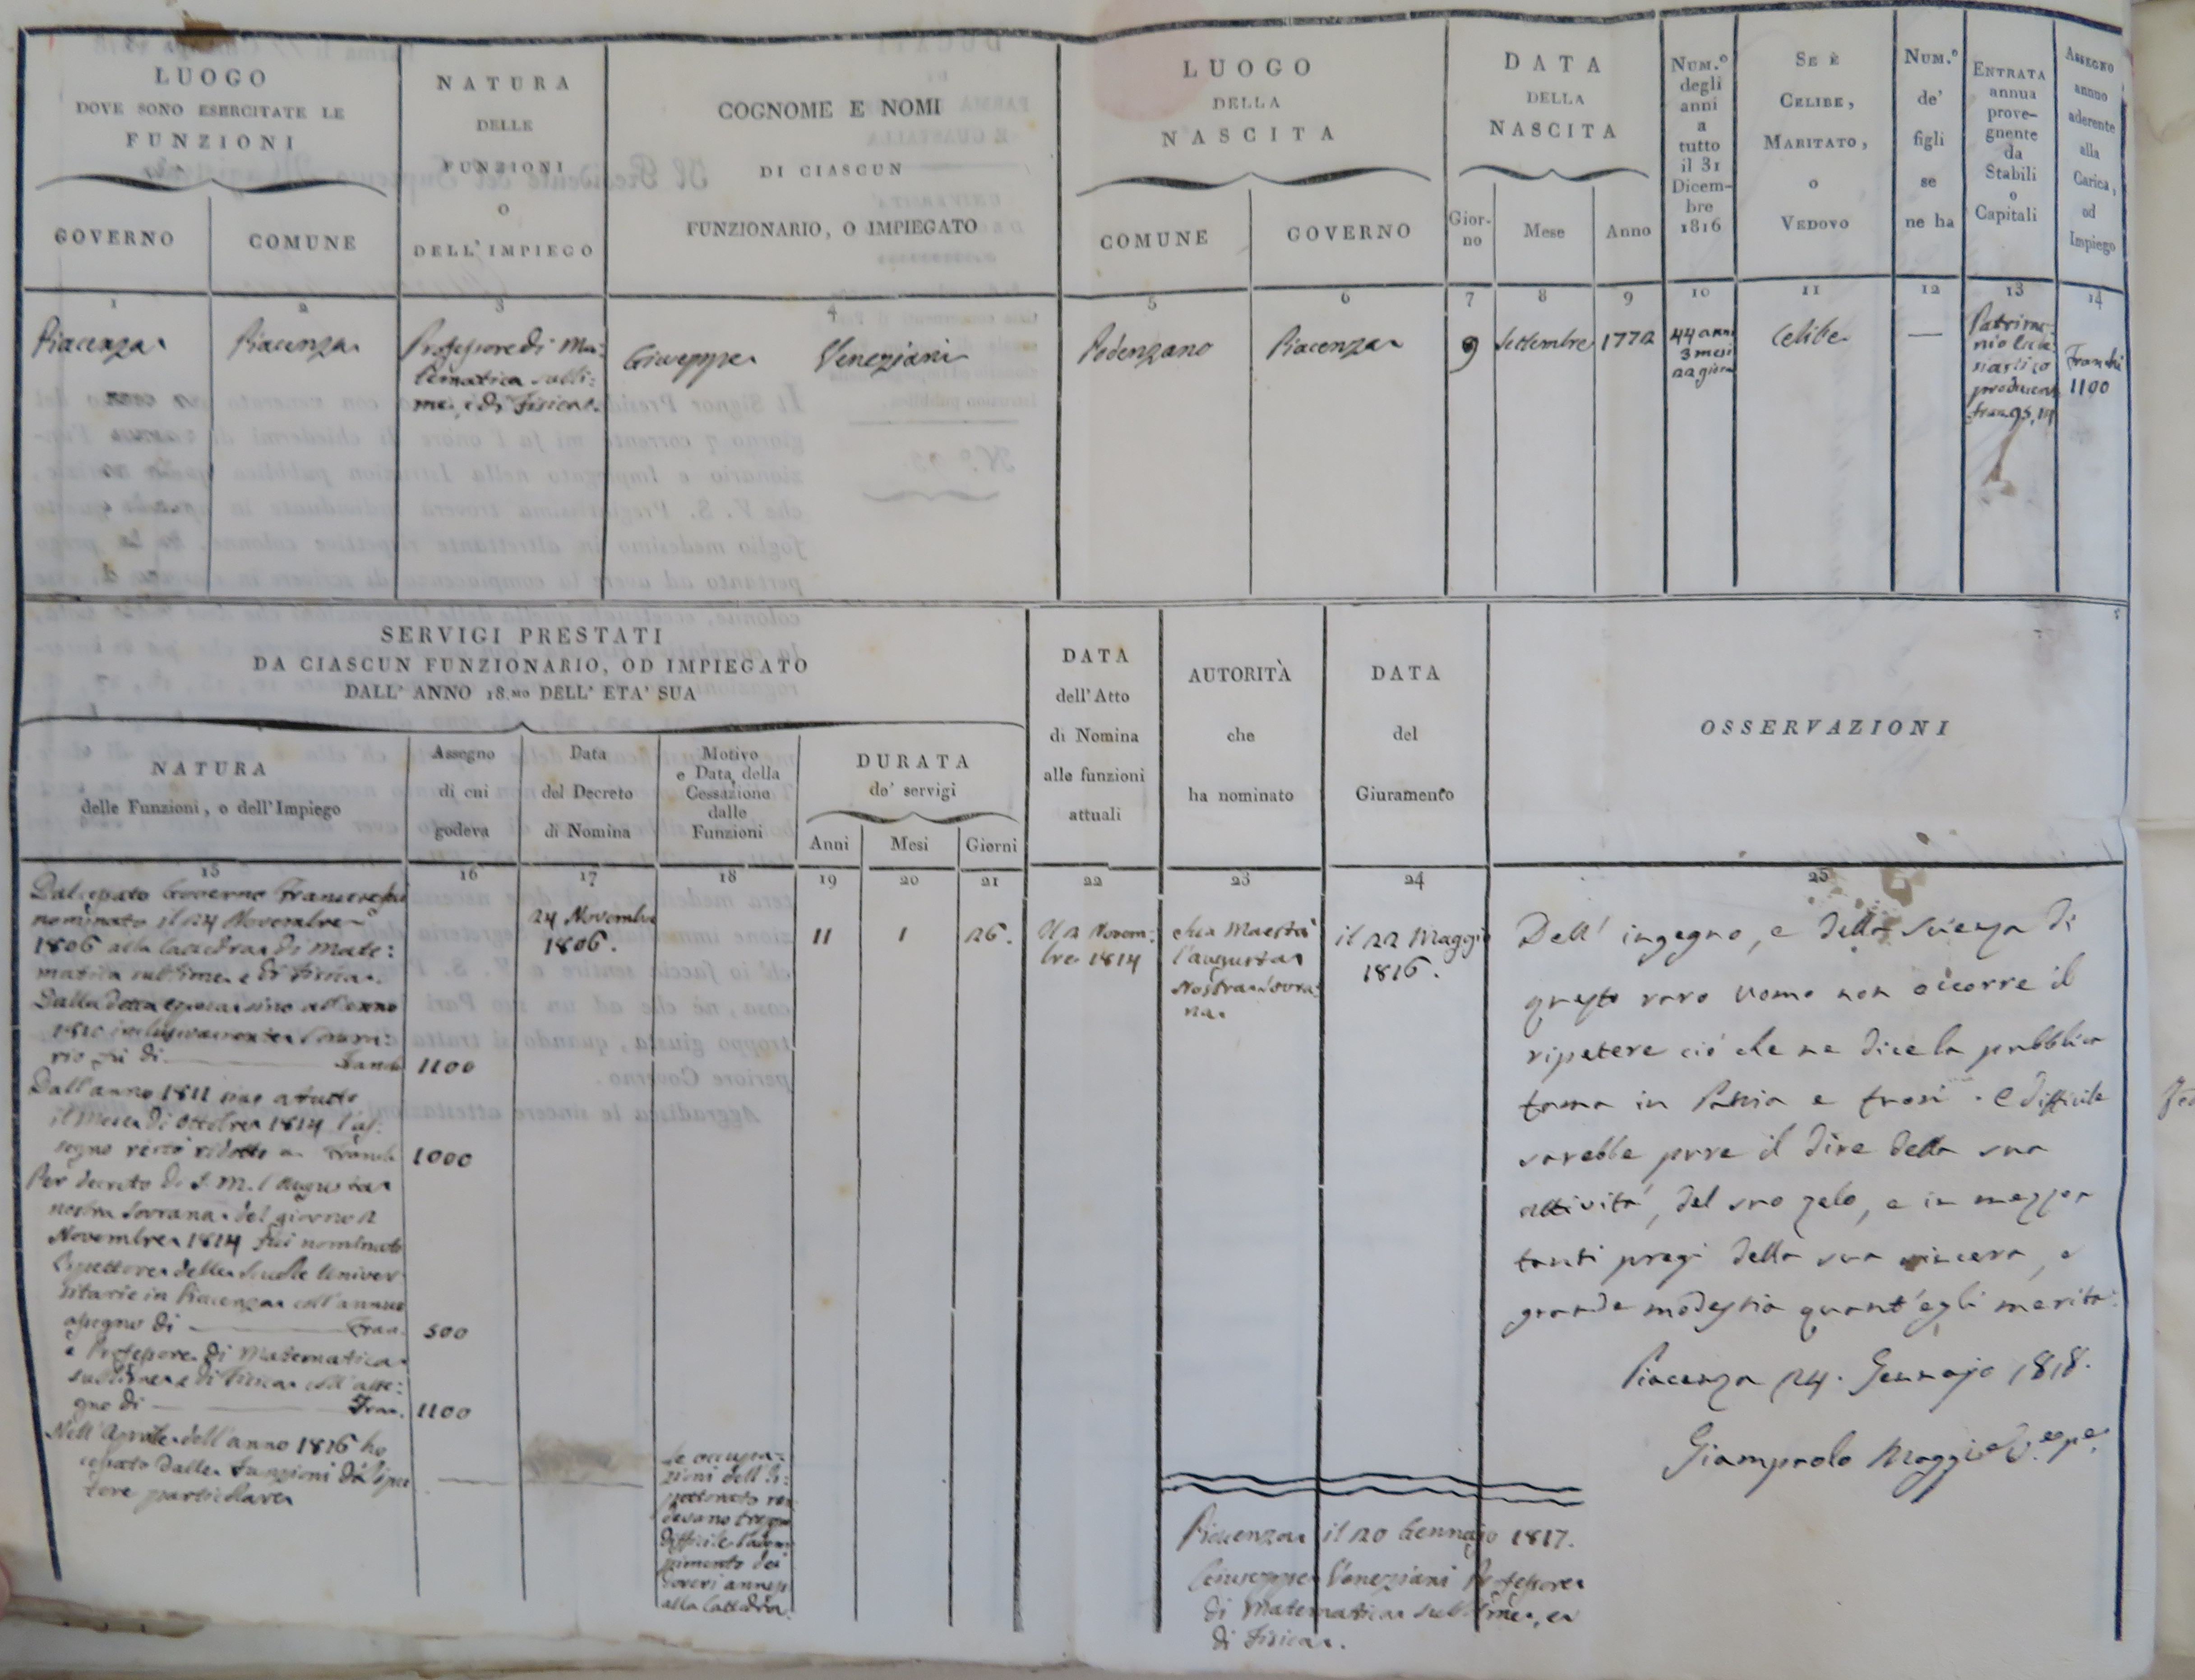 LUOGO
DOVE SONO ESERCITATE LE
FUNZIONI
GOVERNO
COMUNE
NATURA
DELLE
FUNZIONI
O
DELL' IMPIEGO
COGNOME E NOMI
DI CIASCUN
FUNZIONARIO, O IMPIEGATO
LUOGO
DELLA
NASCITA
COMUNE
GOVERNO
DATA
DELLA
NASCITA
Gior-
no
Mese
Anno
NUM.º
degli
anni
a
tutto
il 31
Dicem-
bre
1816
SE È
CELIBE,
MARITATO,
O
VEDOVO
NUM.º
de'
figli
se
ne ha
ENTRATA
annua
prove-
gnente
da
Stabili
o
Capitali
ASSEGNO
annuo
aderente
alla
Carica,
od
Impiego
1 2 3 4 5 6 7 8 9 10 11 12 13 14
Piacenza
Piacenza
Professore di Ma:
tematica subli:
me, e di Fisica.
Giuseppe Veneziani
Podenzano
Piacenza
9
Settembre
1772
44 anni
3 mesi
22 giorni
Celibe
—
Patrimo:
nio Eccle:
siastico
producente
fran. 95,
Franchi
1100
SERVIGI PRESTATI
DA CIASCUN FUNZIONARIO, OD IMPIEGATO
DALL' ANNO 18.MO DELL' ETA' SUA
NATURA
delle Funzioni, o dell'Impiego
Assegno
di cui
godeva
Data
del Decreto
di Nomina
Motivo
e Data della
Cessazione
dalle
Funzioni
DURATA
de' servigi
Anni
Mesi
Giorni
DATA
dell'Atto
di Nomina
alle funzioni
attuali
AUTORITÀ
che
ha nominato
DATA
del
Giuramento
OSSERVAZIONI
15 16 17 18 19 20 21 22 23 24 25
Dal cessato Governo Francese fui
nominato il 24 Novembre
1806 alla Cattedra di Mate:
matica sublime e di Fisica.
Dalla detta epoca sino all'anno
1810 inclusivamente l'onora:
rio fù di — Franchi 1100
Dall'anno 1811 sino a tutto
il Mese di Ottobre 1814 l'as:
segno restò ridotto a Franchi 1000
Per decreto di S. M. l'Augusta
nostra Sovrana del giorno 2
Novembre 1814 fui nominato
Ispettore delle Scuole Univer:
sitarie in Piacenza coll'annuo
assegno di — Fran. 500
e Professore di Matematica
sublime e di Fisica coll'asse:
gno di — Fran. 1100
Nell'Aprile dell'anno 1816 ho
cessato dalle Funzioni d'Ispet
tore particolare
24 Novembre
1806.
le occupa:
zioni dell'Is:
pettorato ren
devano troppo
difficile l'adem
pimento dei
doveri annessi
alla Cattedra.
11
1
26.
Il 2 Novem:
bre 1814
Sua Maestà
l'augusta
Nostra Sovra:
na.
il 22 Maggio
1816.
Dell' ingegno, e della scienza di
questo raro uomo non occorre il
ripetere ciò che ne dice la pubblica
fama in Patria e fuori. E difficile
sarebbe pure il dire della sua
attività, del suo zelo, e in mezzo a
tanti pregi della sua sincera, e
grande modestia quant'egli merita.
Piacenza 24. Gennajo 1818.
Giampaolo Maggi
Piacenza il 20 Gennajo 1817.
Giuseppe Veneziani Professore
di Matematica sublime, e
di Fisica.